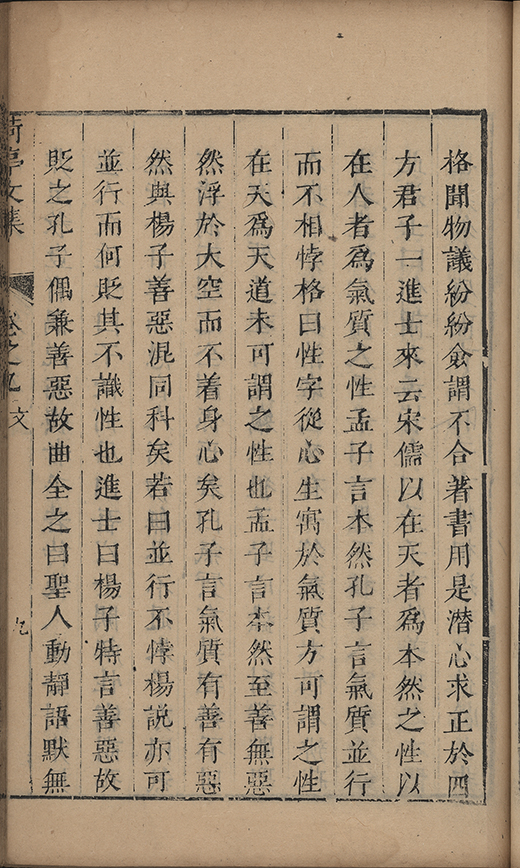 格聞物議紛紛僉謂不合著書用是潛心求正於四
方君子一進士來云宋儒以在天者爲本然之性以
在人者爲氣質之性孟子言本然孔子言氣質並行
而不相悖格曰性字從心生寓於氣質方可謂之性
在天爲天道未可謂之性也孟子言本然至善無惡
然浮於大空而不着身心矣孔子言氣質有善有惡
然與楊子善惡混同科矣若曰並行不悖楊說亦可
並行而何貶其不識性也進士曰楊子特言善惡故
貶之孔子偶兼善惡故曲全之曰聖人動靜語默無
亭文集
卷之九
文
九